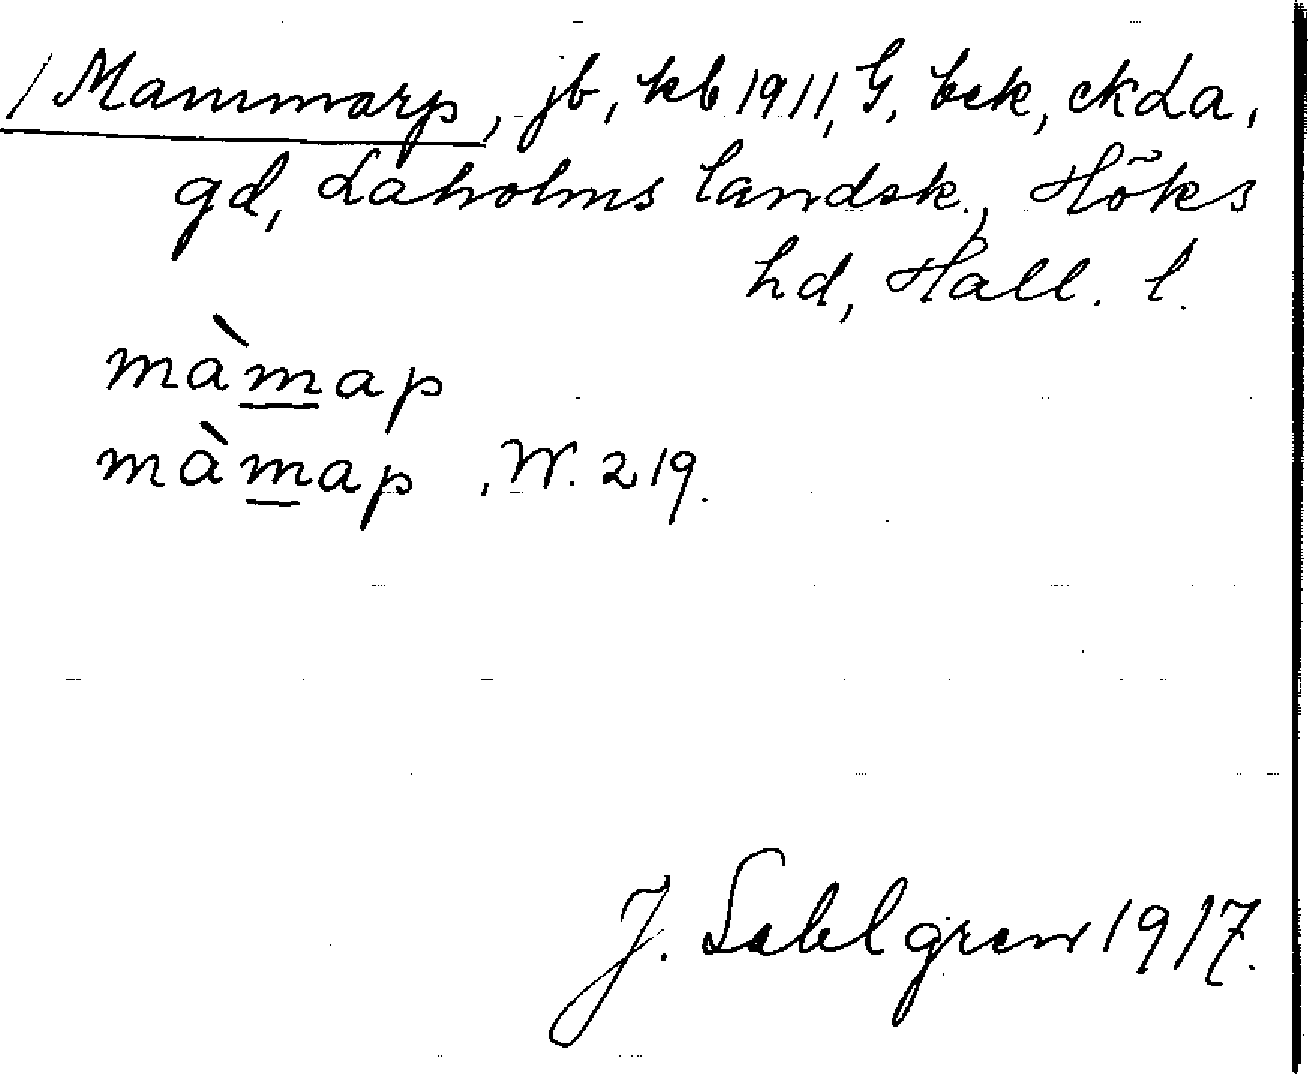 / Mammarp, jb, kb 1911, G. kck, ckda,
gd, Laholms landsk., Höks
hd, Hall. l.
màmap
màmap, W. 219.
J. Sahlgren 1917.